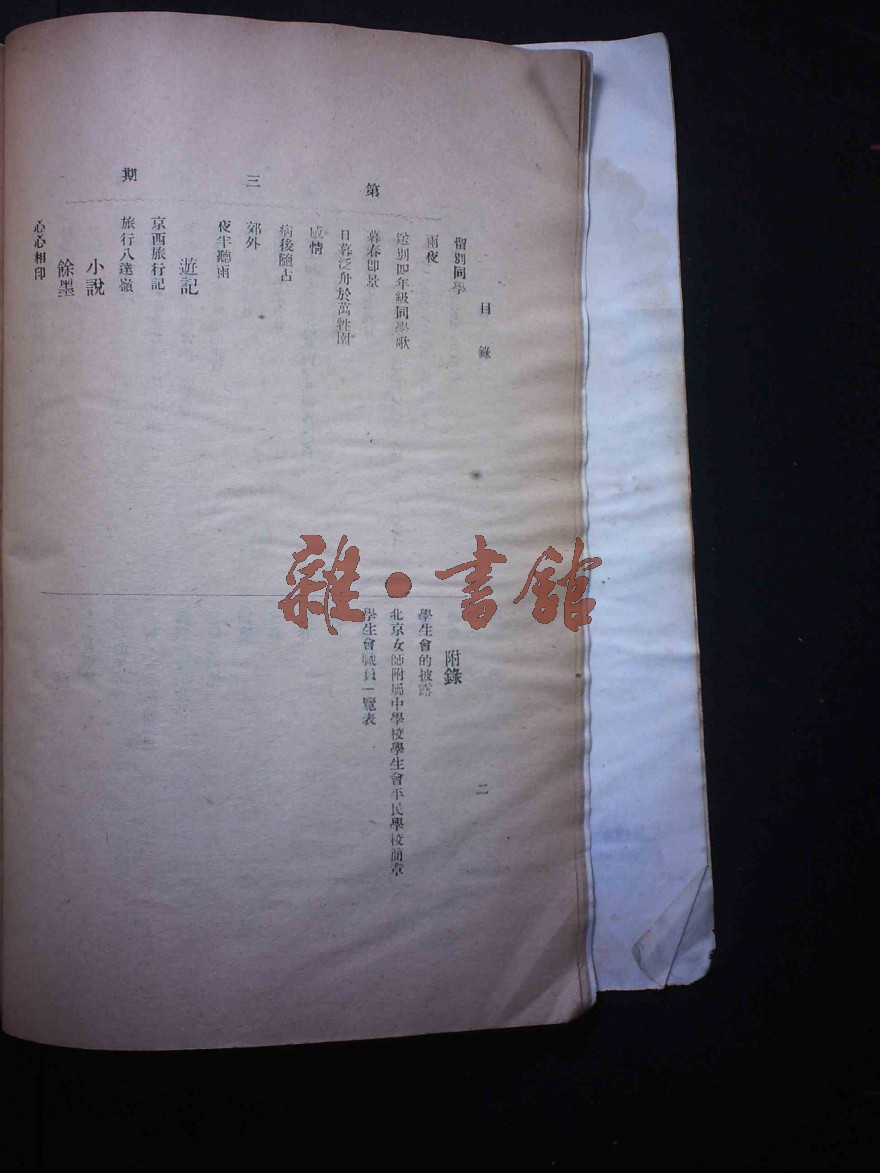 目錄
二
第三期
留別同學
雨夜
送別四年級同學歌
暮春即景
日暮泛舟於萬牲園
感情
病後隨占
郊外
夜半聽雨
遊記
京西旅行記
旅行八達嶺
小說
餘墨
心心相印
附錄
學生會的披露
北京女師附屬中學校學生會平民學校簡章
學生會職員一覽表
雜·書館